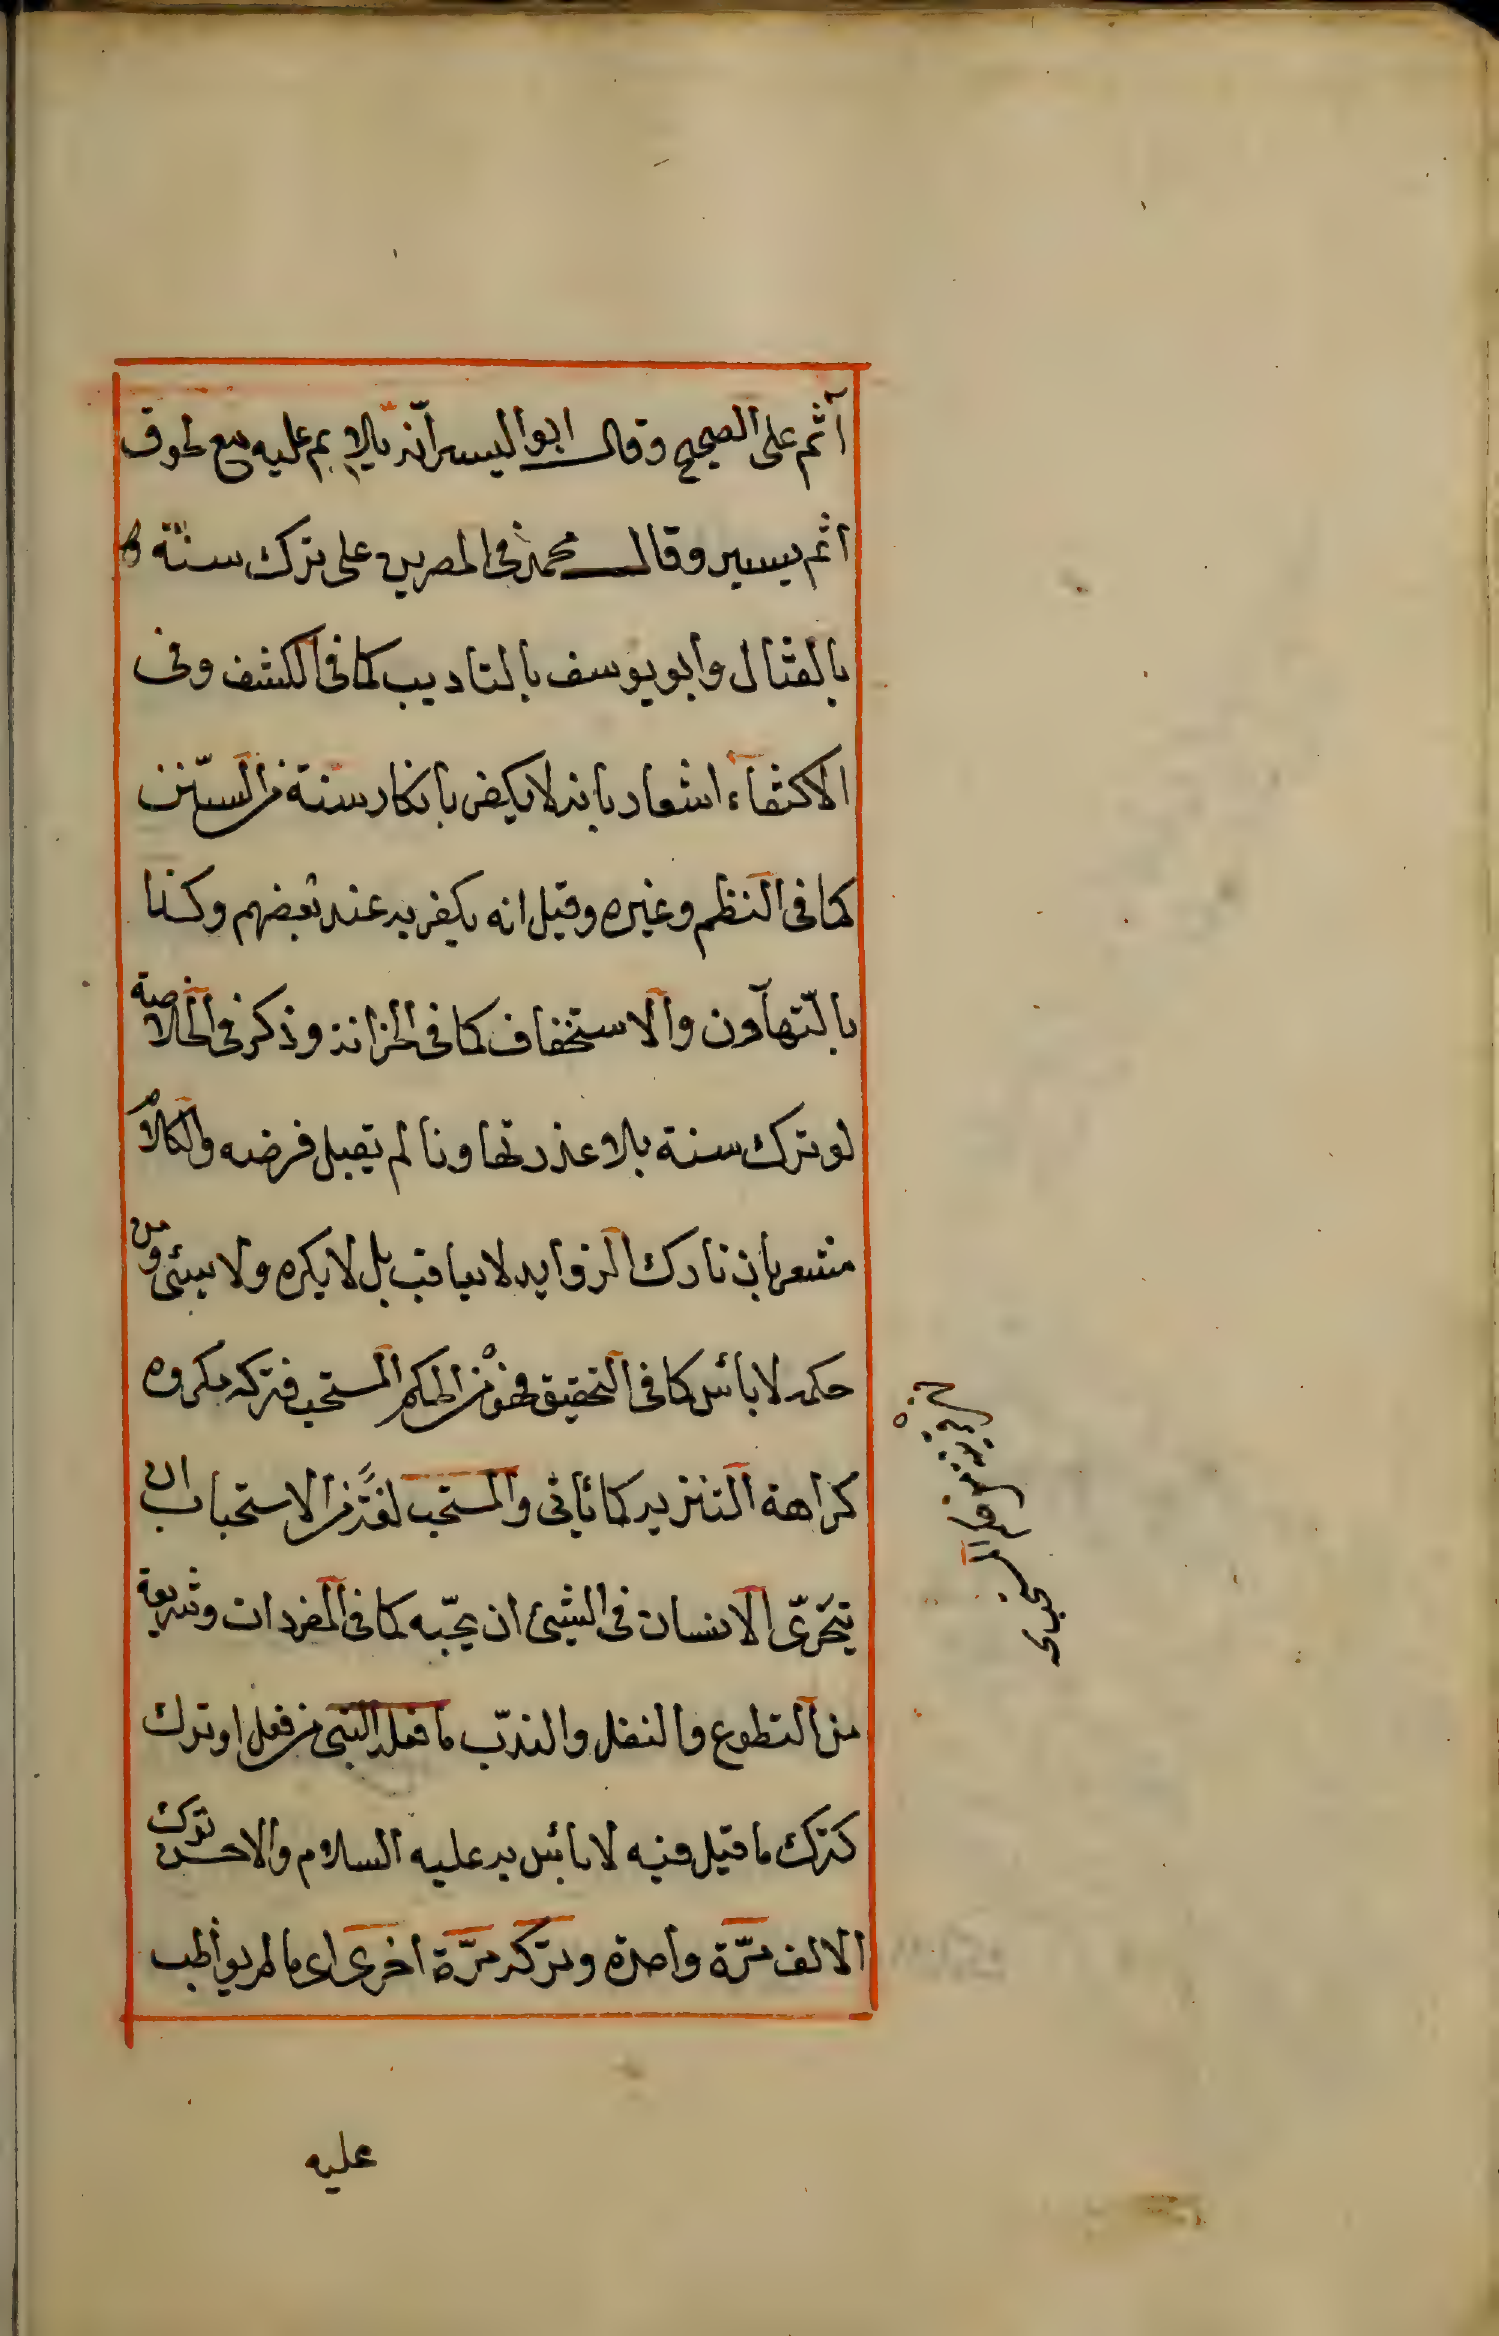 آثم على الصحيح وقال ابو اليسر انه يلام عليه مع لحوق
اثم يسير وقال محمد في المصرين على ترك سنة
بالقتال وابو يوسف بالتاديب كما في الكشف وفى
الاكتفآء اشعار بانه لا يكفر بانكار سنة من السّنن
كما فى النظم وغيره وقيل انه يكفر به عند بعضهم وكذا
بالتّهاون والاستخفاف كما فى الخزانة وذكر في الخلاصة
لو ترك سنة بلا عذر تهاونا لم تقبل فرضه والكلام
مشعر بان تارك الزوايد لا يعاقب بل لا يكره ولا يسئ ومن
حكمه لا بأس كما فى التحقيق فهو من الحكم المستحب فتركه مكروه
كراهة التنزيه كما يأتى والمستحب لغة من الاستحباب ان
يتحرّى الانسان فى الشيئ ان يحبّه كما فى المفردات وشريعة
من التطوع والنفل والندب ما فعله النبى من فعل او ترك
كترك ما قيل فيه لا بأس به عليه السلام والاحسن ترك
الالف مرّة واحدة وتركه مرّة اخرى اى ما لم يواظب
عليه